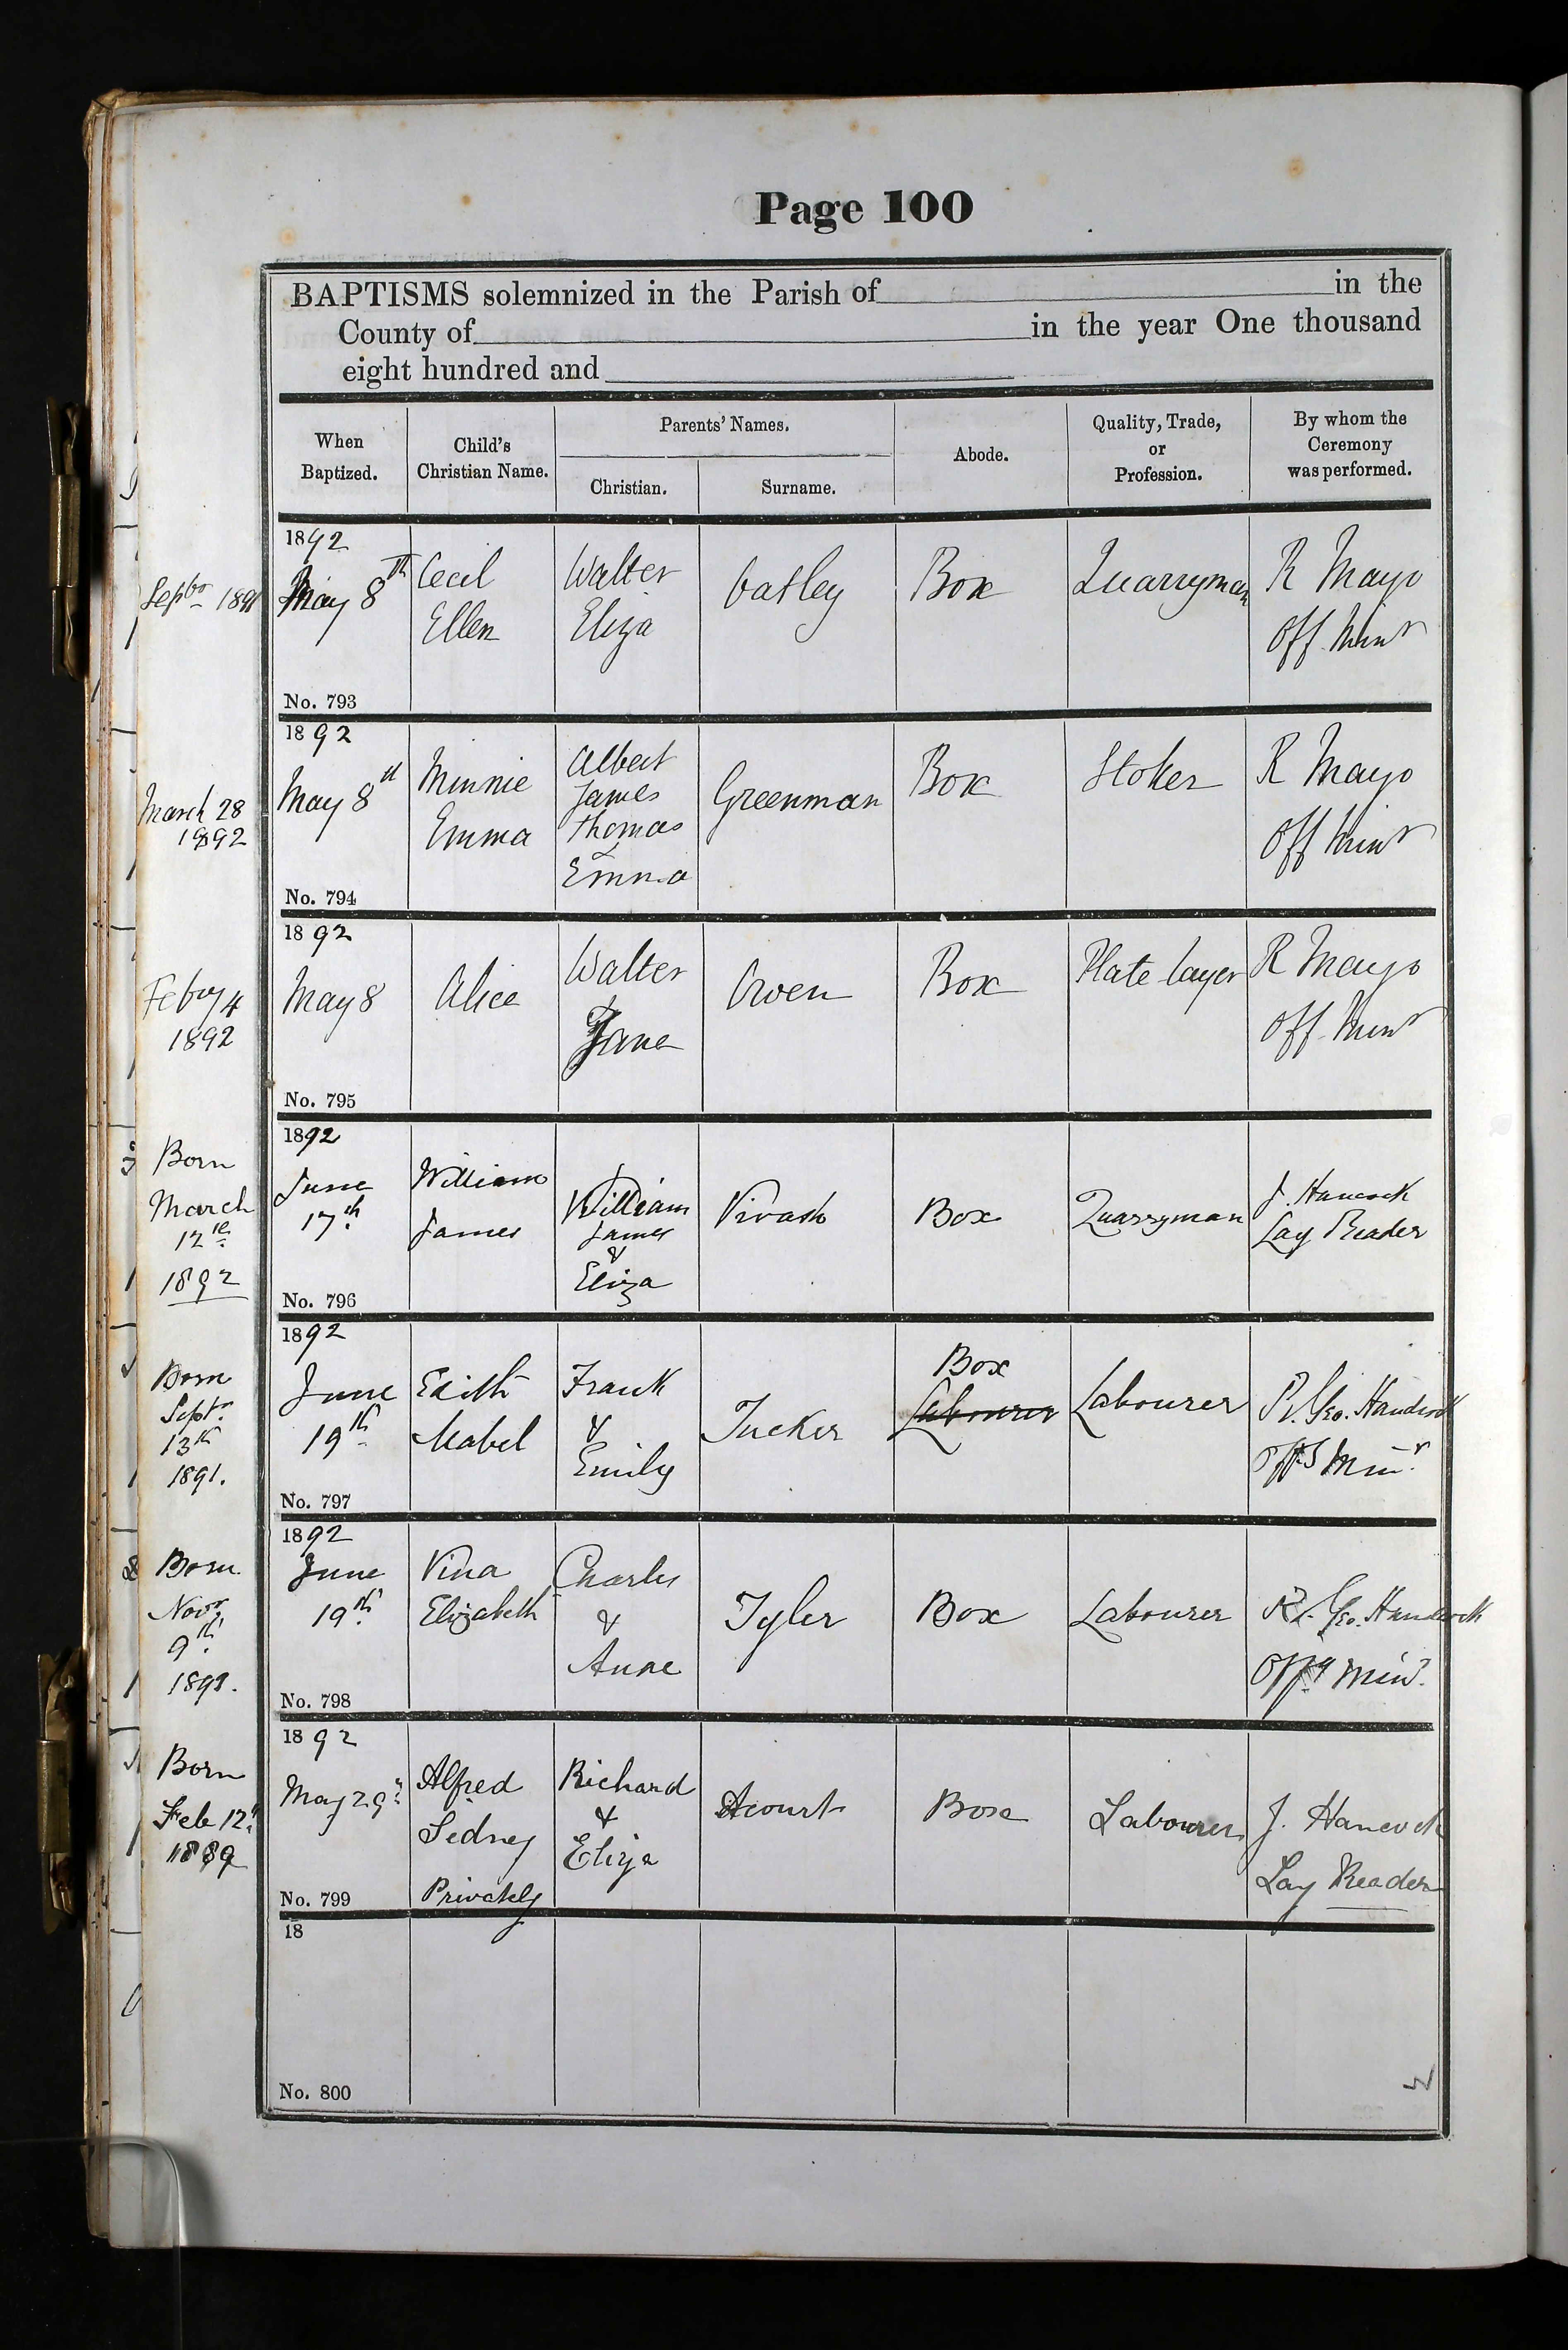 Page 100
BAPTISMS solemnized in the Parish of in the
County of in the year One thousand
eight hundred and
When
Baptized.
Child's
Christian Name.
Parents' Names.
Christian.
Surname.
Abode.
Quality, Trade,
or
Profession.
By whom the
Ceremony
was performed.
Septr 1891
1892
May 8th
No. 793
Cecil
Ellen
Walter
Eliza
Oatley
Box
Quarryman
R Mayo
Off. Minr
March 28
1892
1892
May 8th
No. 794
Minnie
Emma
Albert
James
Thomas
&
Emma
Greenman
Box
Stoker
R Mayo
Off Minr
Febry 4
1892
1892
May 8
No. 795
Alice
Walter
Jane
Owen
Box
Plate layer
R Mayo
Off. Minr
Born
March
12th
1892
1892
June
17th
No. 796
William
James
William
James
&
Eliza
Vivash
Box
Quarryman
J. Hancock
Lay Reader
Born
Septr
13th
1891.
1892
June
19th
No. 797
Edith
Mabel
Frank
&
Emily
Tucker
Box
Labourer
Labourer
Geo. Handcock
Minr.
Born
Novr
9th
1892
June
19th
No. 798
Vina
Elizabeth
Charles
&
Anne
Tyler
Box
Labourer
Geo. Handcock
Minr.
Born
Feb 12th
1889
1892
May 29th
No. 799
Alfred
Sidney
Privately
Richard
&
Eliza
Acourt
Box
Labourer
J. Hancock
Lay Reader
18
No. 800